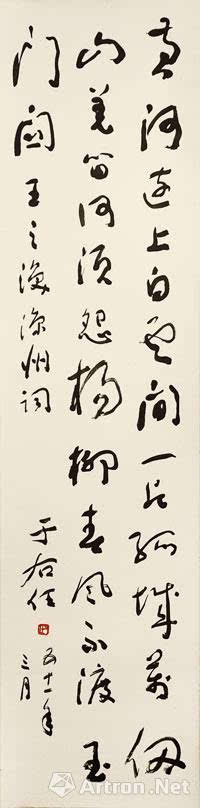 黄河远上白云间一片孤城万仞
山羌笛何须怨杨柳春风不度玉
门关王之涣凉州词
于右任
五十一年
三月
Artron.Net
雅昌艺术网